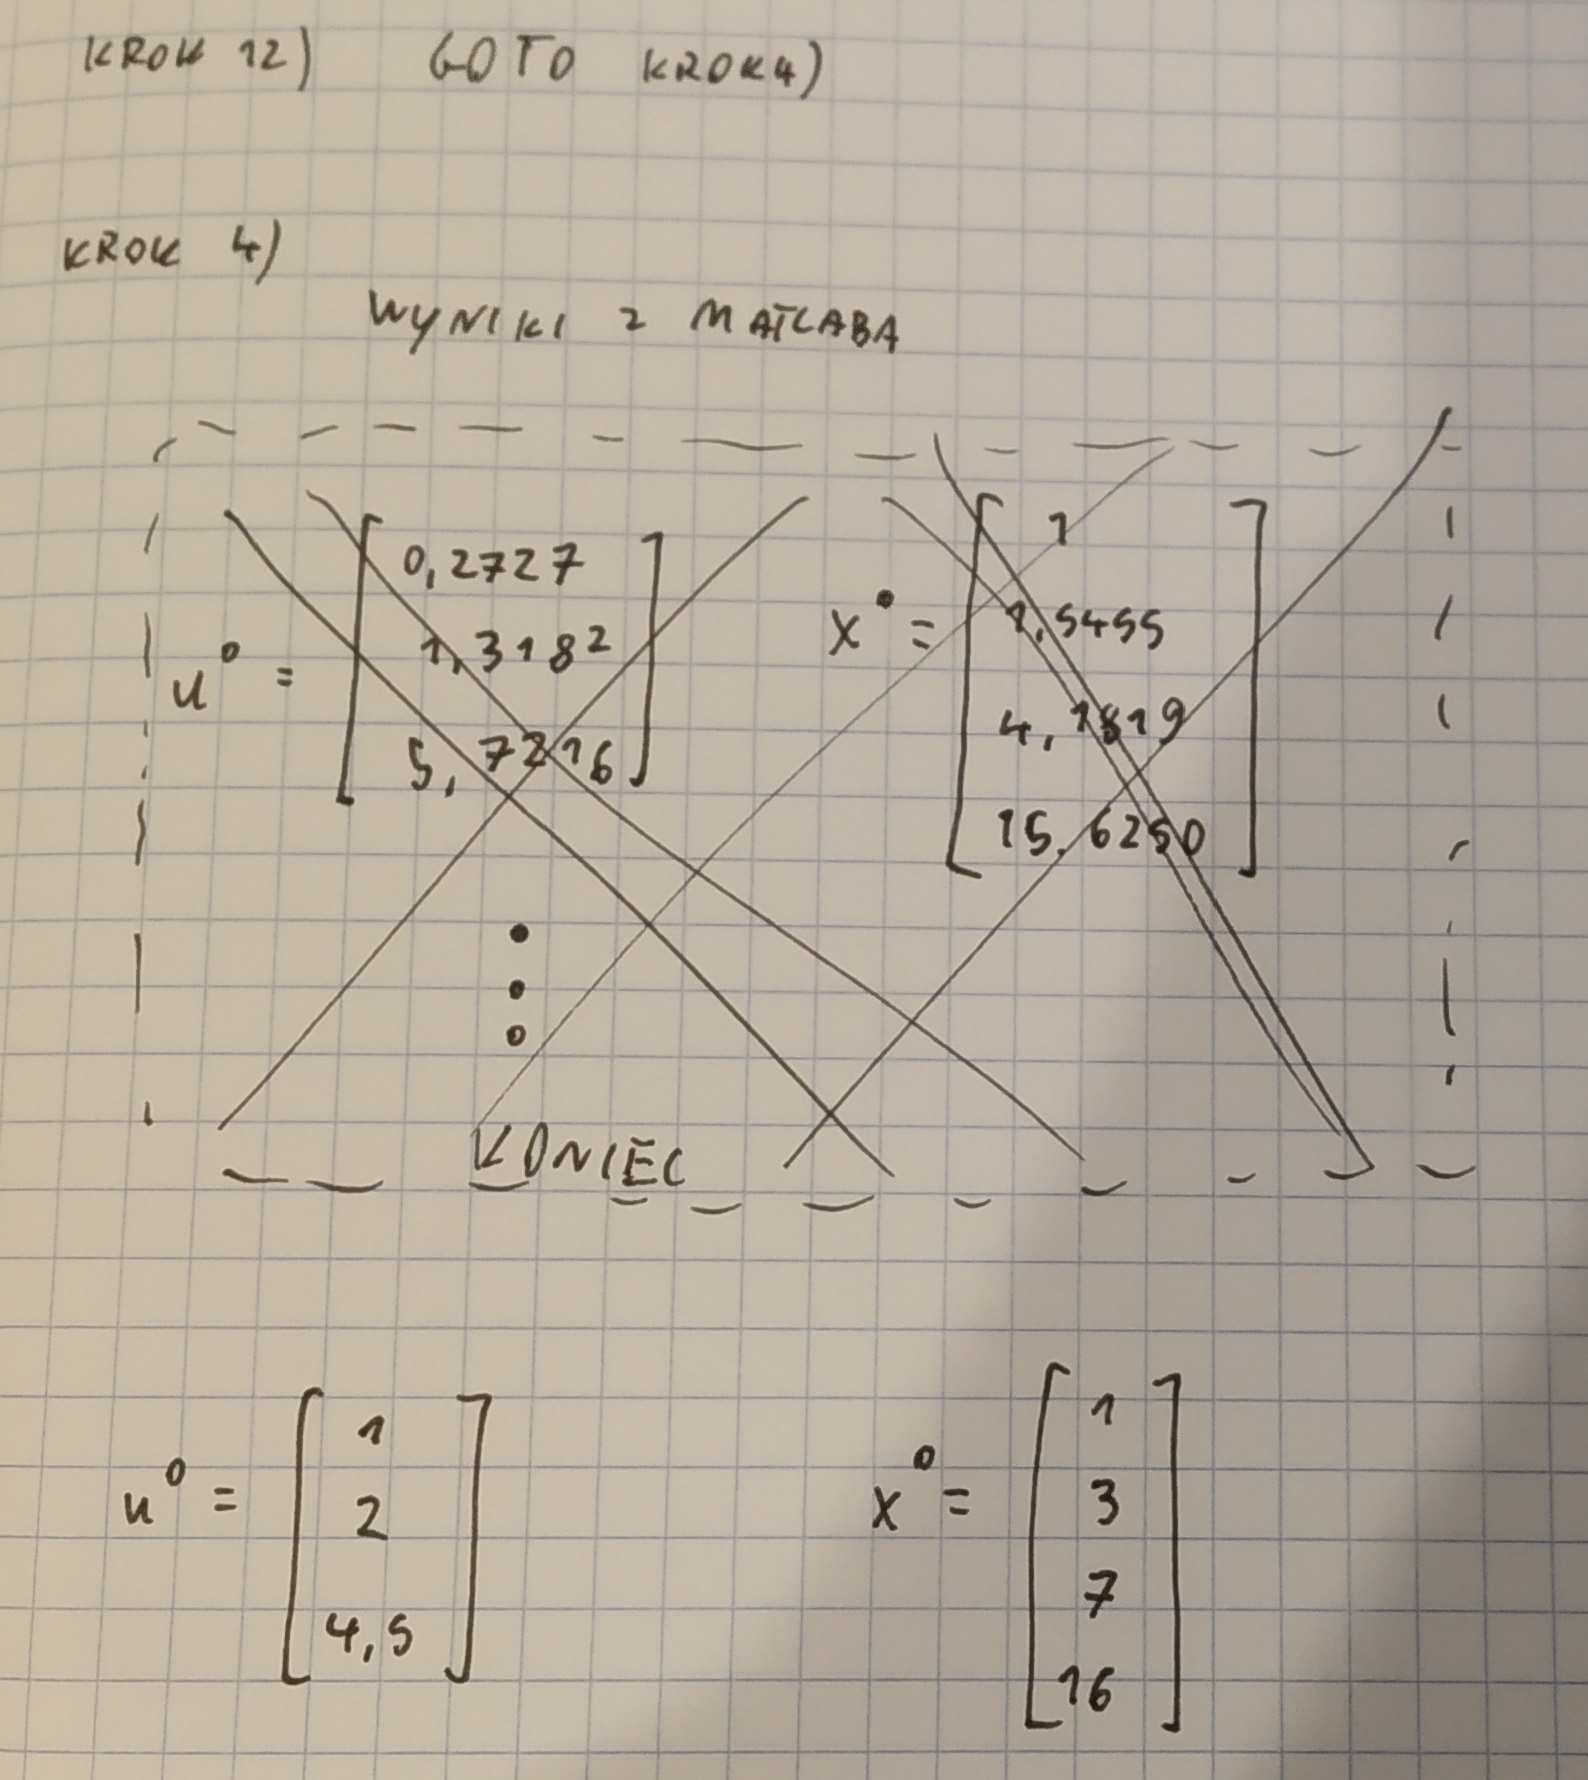 KROK 12) GO TO KROK 4)
KROK 4)
WYNIKI Z MATLABA
u° = [ 0,2727
1,3182
5,7216 ]
x° = [ 1
1,5455
4,1819
15,6250 ]
KONIEC
u° = [ 1
2
4,5 ]
x° = [ 1
3
7
16 ]